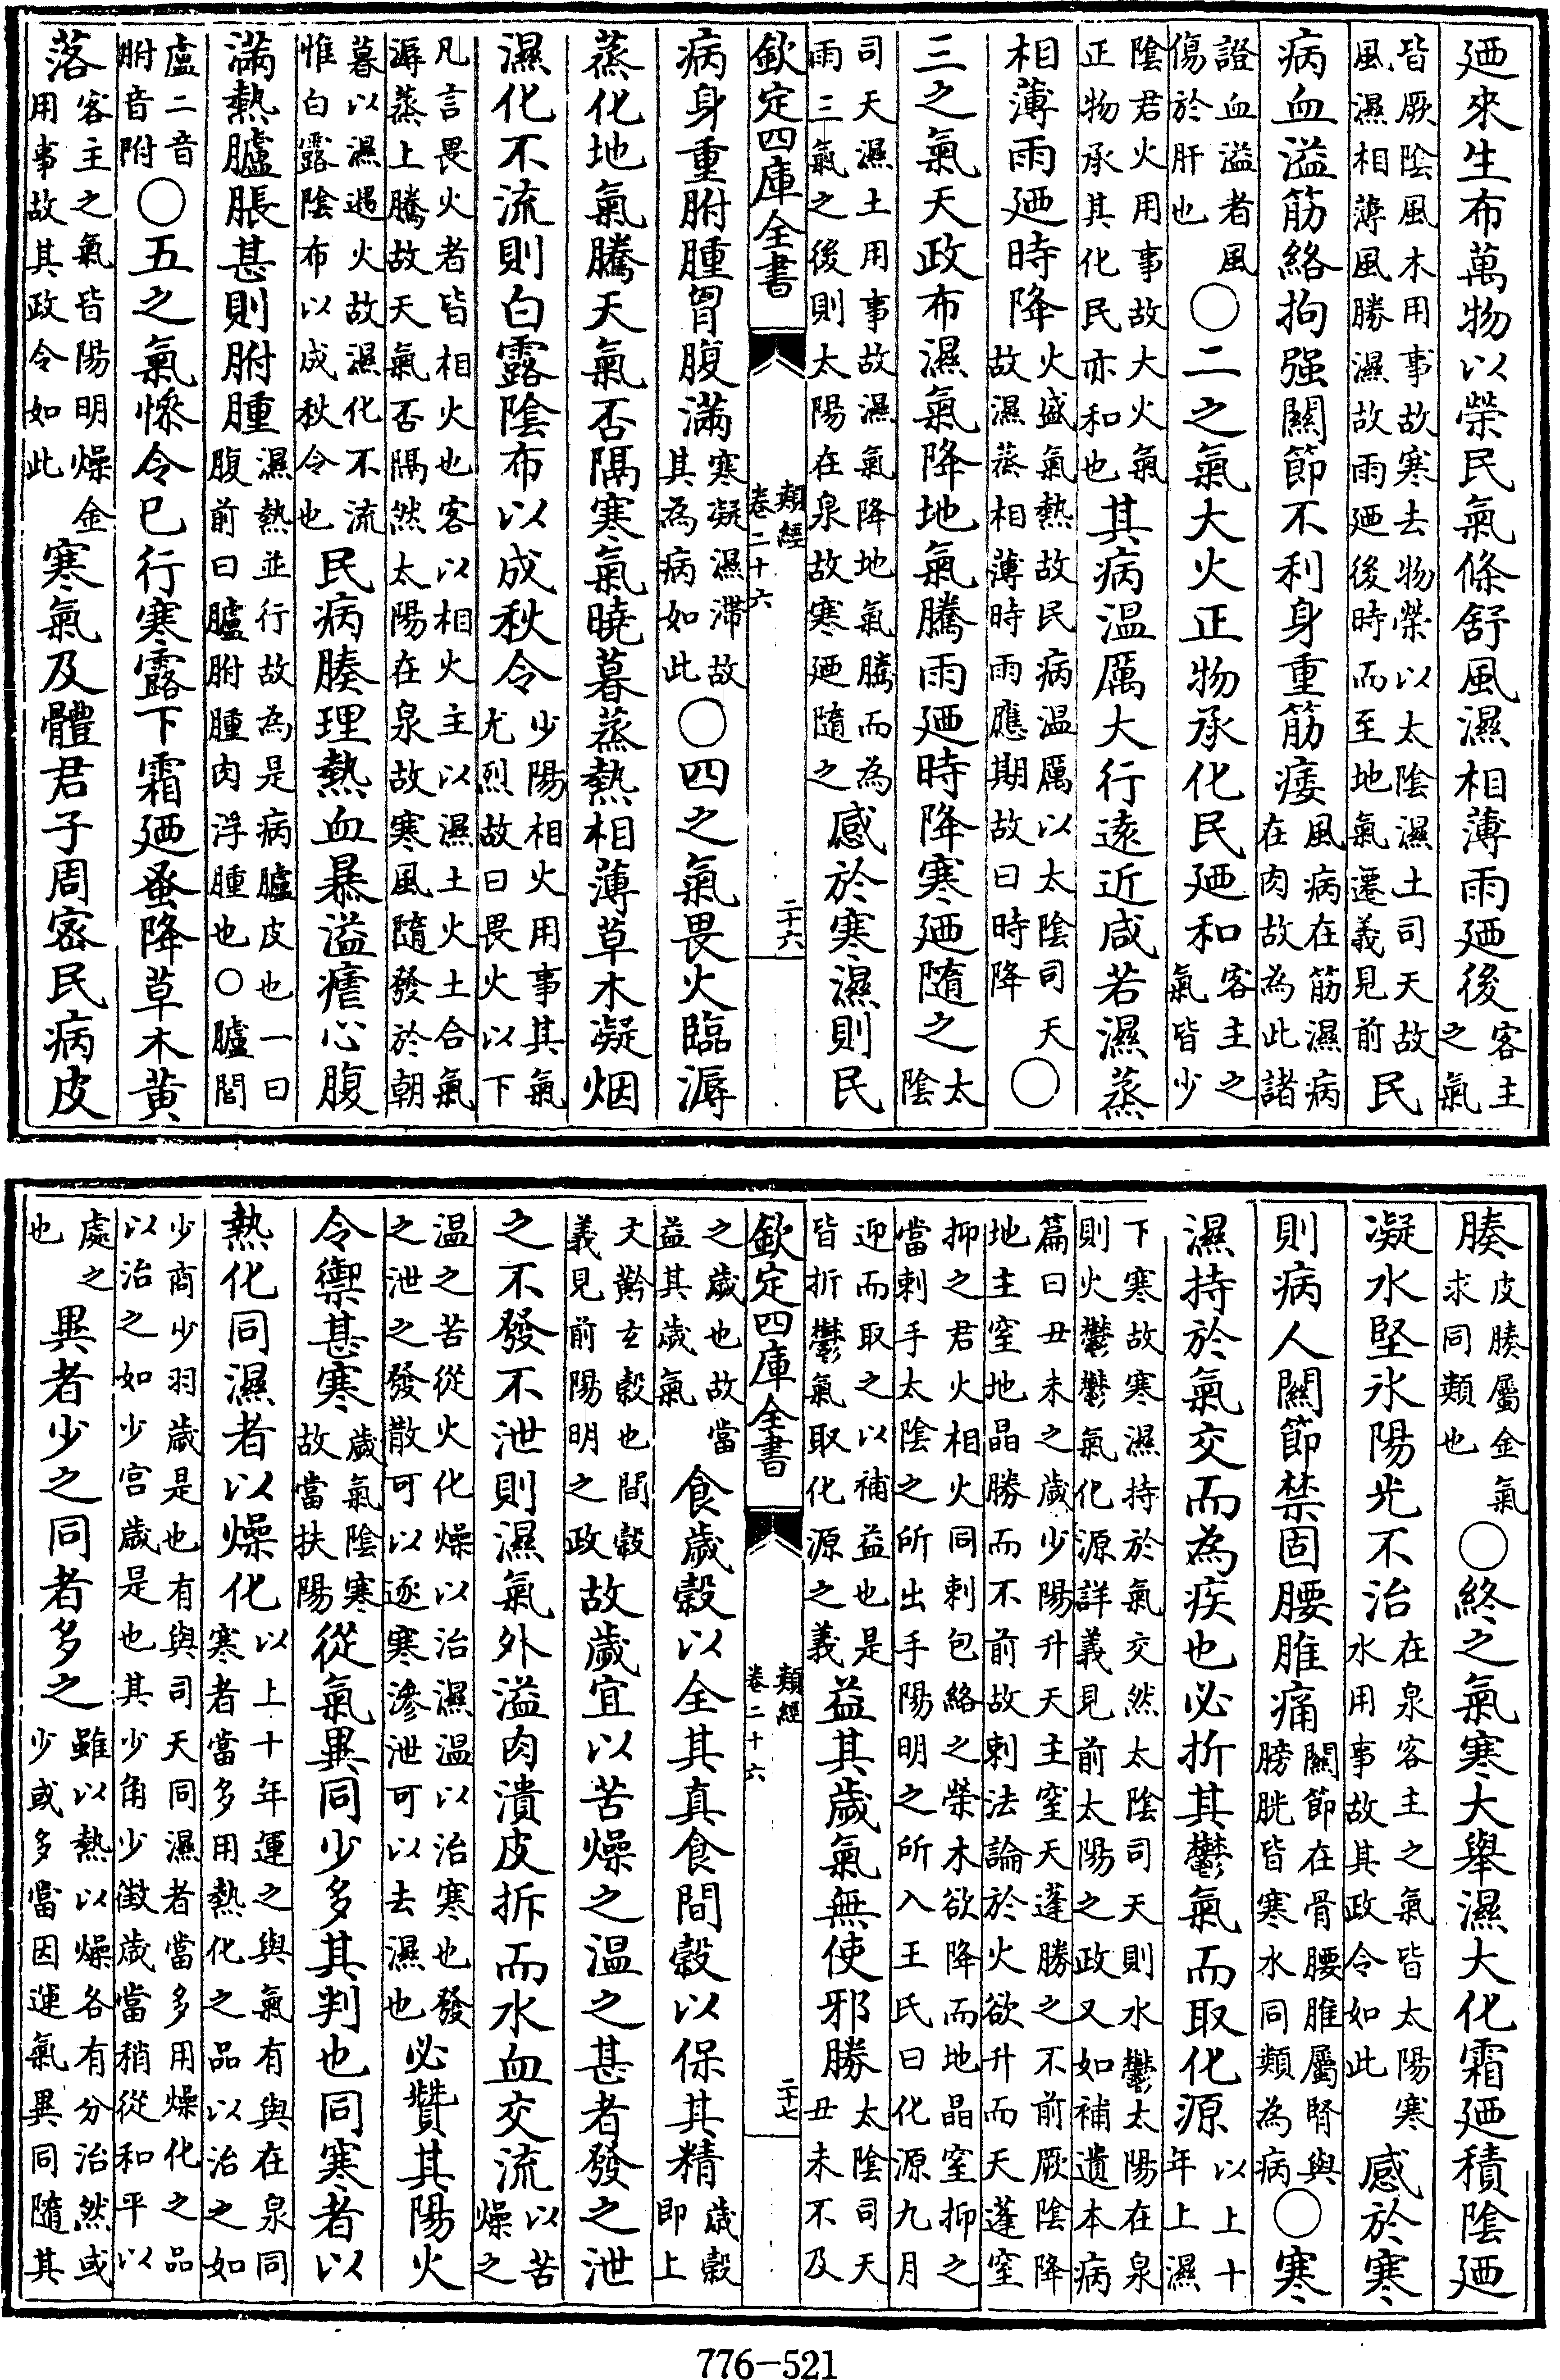 廼來生布萬物以榮民氣條舒風濕相薄雨廼後客主之氣
皆厥陰風木用事故寒去物榮以太陰濕土司天故風濕相薄風勝濕故雨廼後時而至地氣遷義見前民
病血溢筋絡拘强關節不利身重筋痿風病在筋濕病在肉故為此諸
證血溢者風傷於肝也〇二之氣大火正物承化民廼和客主之氣皆少
陰君火用事故大火氣正物承其化民亦和也其病温厲大行遠近咸若濕蒸
相薄雨廼時降火盛氣熱故民病温厲以太陰司天故濕蒸相薄時雨應期故曰時降〇
三之氣天政布濕氣降地氣騰雨廼時降寒廼隨之太陰
司天濕土用事故濕氣降地氣騰而為雨三氣之後則太陽在泉故寒廼隨之感於寒濕則民
欽定四庫全書 類經卷二十六 二十六
病身重胕腫胷腹滿寒凝濕滯故其為病如此〇四之氣畏火臨溽
蒸化地氣騰天氣否隔寒氣曉暮蒸熱相薄草木凝烟
濕化不流則白露陰布以成秋令少陽相火用事其氣尤烈故曰畏火以下
凡言畏火者皆相火也客以相火主以濕土火土合氣溽蒸上騰故天氣否隔然太陽在泉故寒風隨發於朝
暮以濕遇火故濕化不流惟白露陰布以成秋令也民病腠理熱血暴溢瘧心腹
滿熱臚脹甚則胕腫濕熱並行故為是病臚皮也一曰腹前曰臚胕腫肉浮腫也〇臚閭
盧二音胕音附〇五之氣慘令已行寒露下霜廼蚤降草木黄
落客主之氣皆陽明燥金用事故其政令如此寒氣及體君子周密民病皮
腠皮腠屬金氣求同類也〇終之氣寒大舉濕大化霜廼積陰廼
凝水堅氷陽光不治在泉客主之氣皆太陽寒水用事故其政令如此感於寒
則病人關節禁固腰脽痛關節在骨腰脽屬腎與膀胱皆寒水同類為病〇寒
濕持於氣交而為疾也必折其鬱氣而取化源以上十年上濕
下寒故寒濕持於氣交然太陰司天則水鬱太陽在泉則火鬱鬱氣化源詳義見前太陽之政又如補遺本病
篇曰丑未之歲少陽升天主窒天蓬勝之不前厥陰降地主窒地晶勝而不前故刺法論於火欲升而天蓬窒
抑之君火相火同刺包絡之滎木欲降而地晶窒抑之當刺手太陰之所出手陽明之所入王氏曰化源九月
迎而取之以補益也是皆折鬱氣取化源之義益其歲氣無使邪勝太陰司天丑未不及
欽定四庫全書 類經卷二十六 二十七
之歲也故當益其歲氣食歲穀以全其真食間穀以保其精歲穀即上
文黅玄穀也間穀義見前陽明之政故歲宜以苦燥之温之甚者發之泄
之不發不泄則濕氣外溢肉潰皮拆而水血交流以苦燥之
温之苦從火化燥以治濕温以治寒也發之泄之發散可以逐寒滲泄可以去濕也必贊其陽火
令禦甚寒歲氣陰寒故當扶陽從氣異同少多其判也同寒者以
熱化同濕者以燥化以上十年運之與氣有與在泉同寒者當多用熱化之品以治之如
少商少羽歲是也有與司天同濕者當多用燥化之品以治之如少宫歲是也其少角少徵歲當稍從和平以
處之也異者少之同者多之雖以熱以燥各有分治然或少或多當因運氣異同隨其
776-521